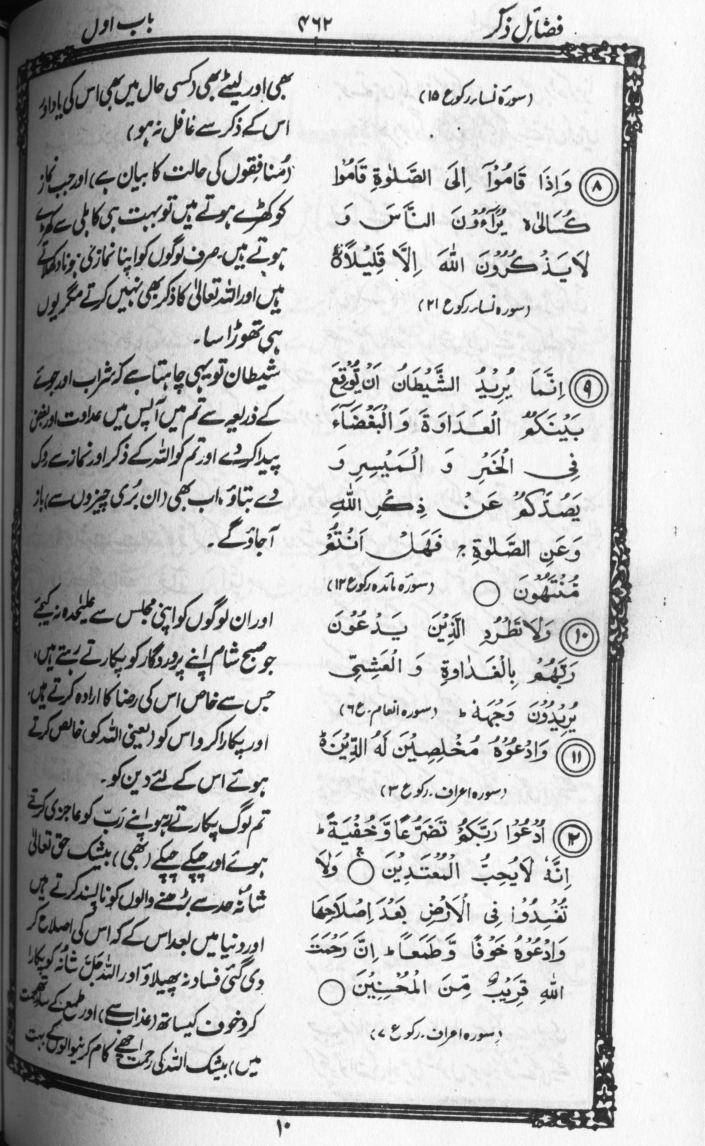 فضائل ذکر
۴۶۲
باب اول
(سورہ نساء رکوع ۱۵)
۸ وَاِذَا قَامُوْٓا اِلَی الصَّلٰوةِ قَامُوْا
كُسَالٰی ۙ يُرَآءُوْنَ النَّاسَ وَ
لَا يَذْكُرُوْنَ اللّٰهَ اِلَّا قَلِيْلًا ۙ
(سورہ نساء رکوع ۲۱)
۹ اِنَّمَا يُرِيْدُ الشَّيْطَانُ اَنْ يُّوْقِعَ
بَيْنَكُمُ الْعَدَاوَةَ وَالْبَغْضَآءَ
فِی الْخَمْرِ وَ الْمَيْسِرِ وَ
يَصُدَّكُمْ عَنْ ذِكْرِ اللّٰهِ
وَعَنِ الصَّلٰوةِ ۚ فَهَلْ اَنْتُمْ
مُّنْتَهُوْنَ ○ (سورہ مائدہ رکوع ۱۲)
۱۰ وَلَا تَطْرُدِ الَّذِيْنَ يَدْعُوْنَ
رَبَّهُمْ بِالْغَدَاوةِ وَ الْعَشِيِّ
يُرِيْدُوْنَ وَجْهَهٗ ط (سورہ انعام۔ ع ۶)
۱۱ وَادْعُوْهُ مُخْلِصِيْنَ لَهُ الدِّيْنَ ط
(سورہ اعراف۔ رکوع ۳)
۱۲ اُدْعُوْا رَبَّكُمْ تَضَرُّعًا وَّ خُفْيَةً ط
اِنَّهٗ لَا يُحِبُّ الْمُعْتَدِيْنَ ○ وَلَا
تُفْسِدُوْا فِی الْاَرْضِ بَعْدَ اِصْلَاحِهَا
وَادْعُوْهُ خَوْفًا وَّطَمَعًا ط اِنَّ رَحْمَتَ
اللّٰهِ قَرِيْبٌ مِّنَ الْمُحْسِنِيْنَ ○
(سورہ اعراف۔ رکوع ۷)
بھی اور لیٹے بھی (کسی حال میں بھی اس کی یاد اور
اس کے ذکر سے غافل نہ ہو)
(منافقوں کی حالت کا بیان ہے) اور جب نماز
کو کھڑے ہوتے ہیں تو بہت ہی کاہلی سے کھڑے
ہوتے ہیں۔ صرف لوگوں کو اپنا نمازی ہونا دکھلاتے
ہیں اور اللہ تعالیٰ کا ذکر بھی نہیں کرتے مگر یوں
ہی تھوڑا سا۔
شیطان تو یہی چاہتا ہے کہ شراب اور جوئے
کے ذریعہ سے تم میں آپس میں عداوت اور بغض
پیدا کردے اور تم کو اللہ کے ذکر اور نماز سے روک
دے بتاؤ، اب بھی (ان بُری چیزوں سے) باز
آجاؤ گے۔
اور ان لوگوں کو اپنی مجلس سے علیحدہ نہ کیجئے
جو صبح شام اپنے پروردگار کو پکارتے رہتے ہیں،
جس سے خاص اس کی رضا کا ارادہ کرتے ہیں،
اور پکارا کرو اس کو (یعنی اللہ کو) خالص کرتے
ہوئے اس کے لئے دین کو۔
تم لوگ پکارتے رہو اپنے رَبّ کو عاجزی کرتے
ہوئے اور چپکے چپکے (بھی) بیشک حق تعالیٰ
شانہٗ حد سے بڑھنے والوں کو ناپسند کرتے ہیں
اور دنیا میں بعد اس کے کہ اس کی اصلاح کر
دی گئی فساد نہ پھیلاؤ اور اللہ جَلَّ شانُہٗ کو پکارا
کرو خوف کیساتھ (عذاب سے) اور طمع کے ساتھ (رحمت
میں) بیشک اللہ کی رحمت اچھے کام کرنیوالوں کے بہت
۱۰